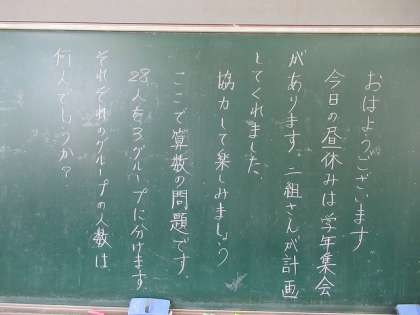 おはようございます
今日の昼休みは学年集会
があります。二組さんが計画
してくれました。
協力して楽しみましょう
ここで算数の問題です。
28人を3グループに分けます。
それぞれのグループの人数は
何人でしょうか?